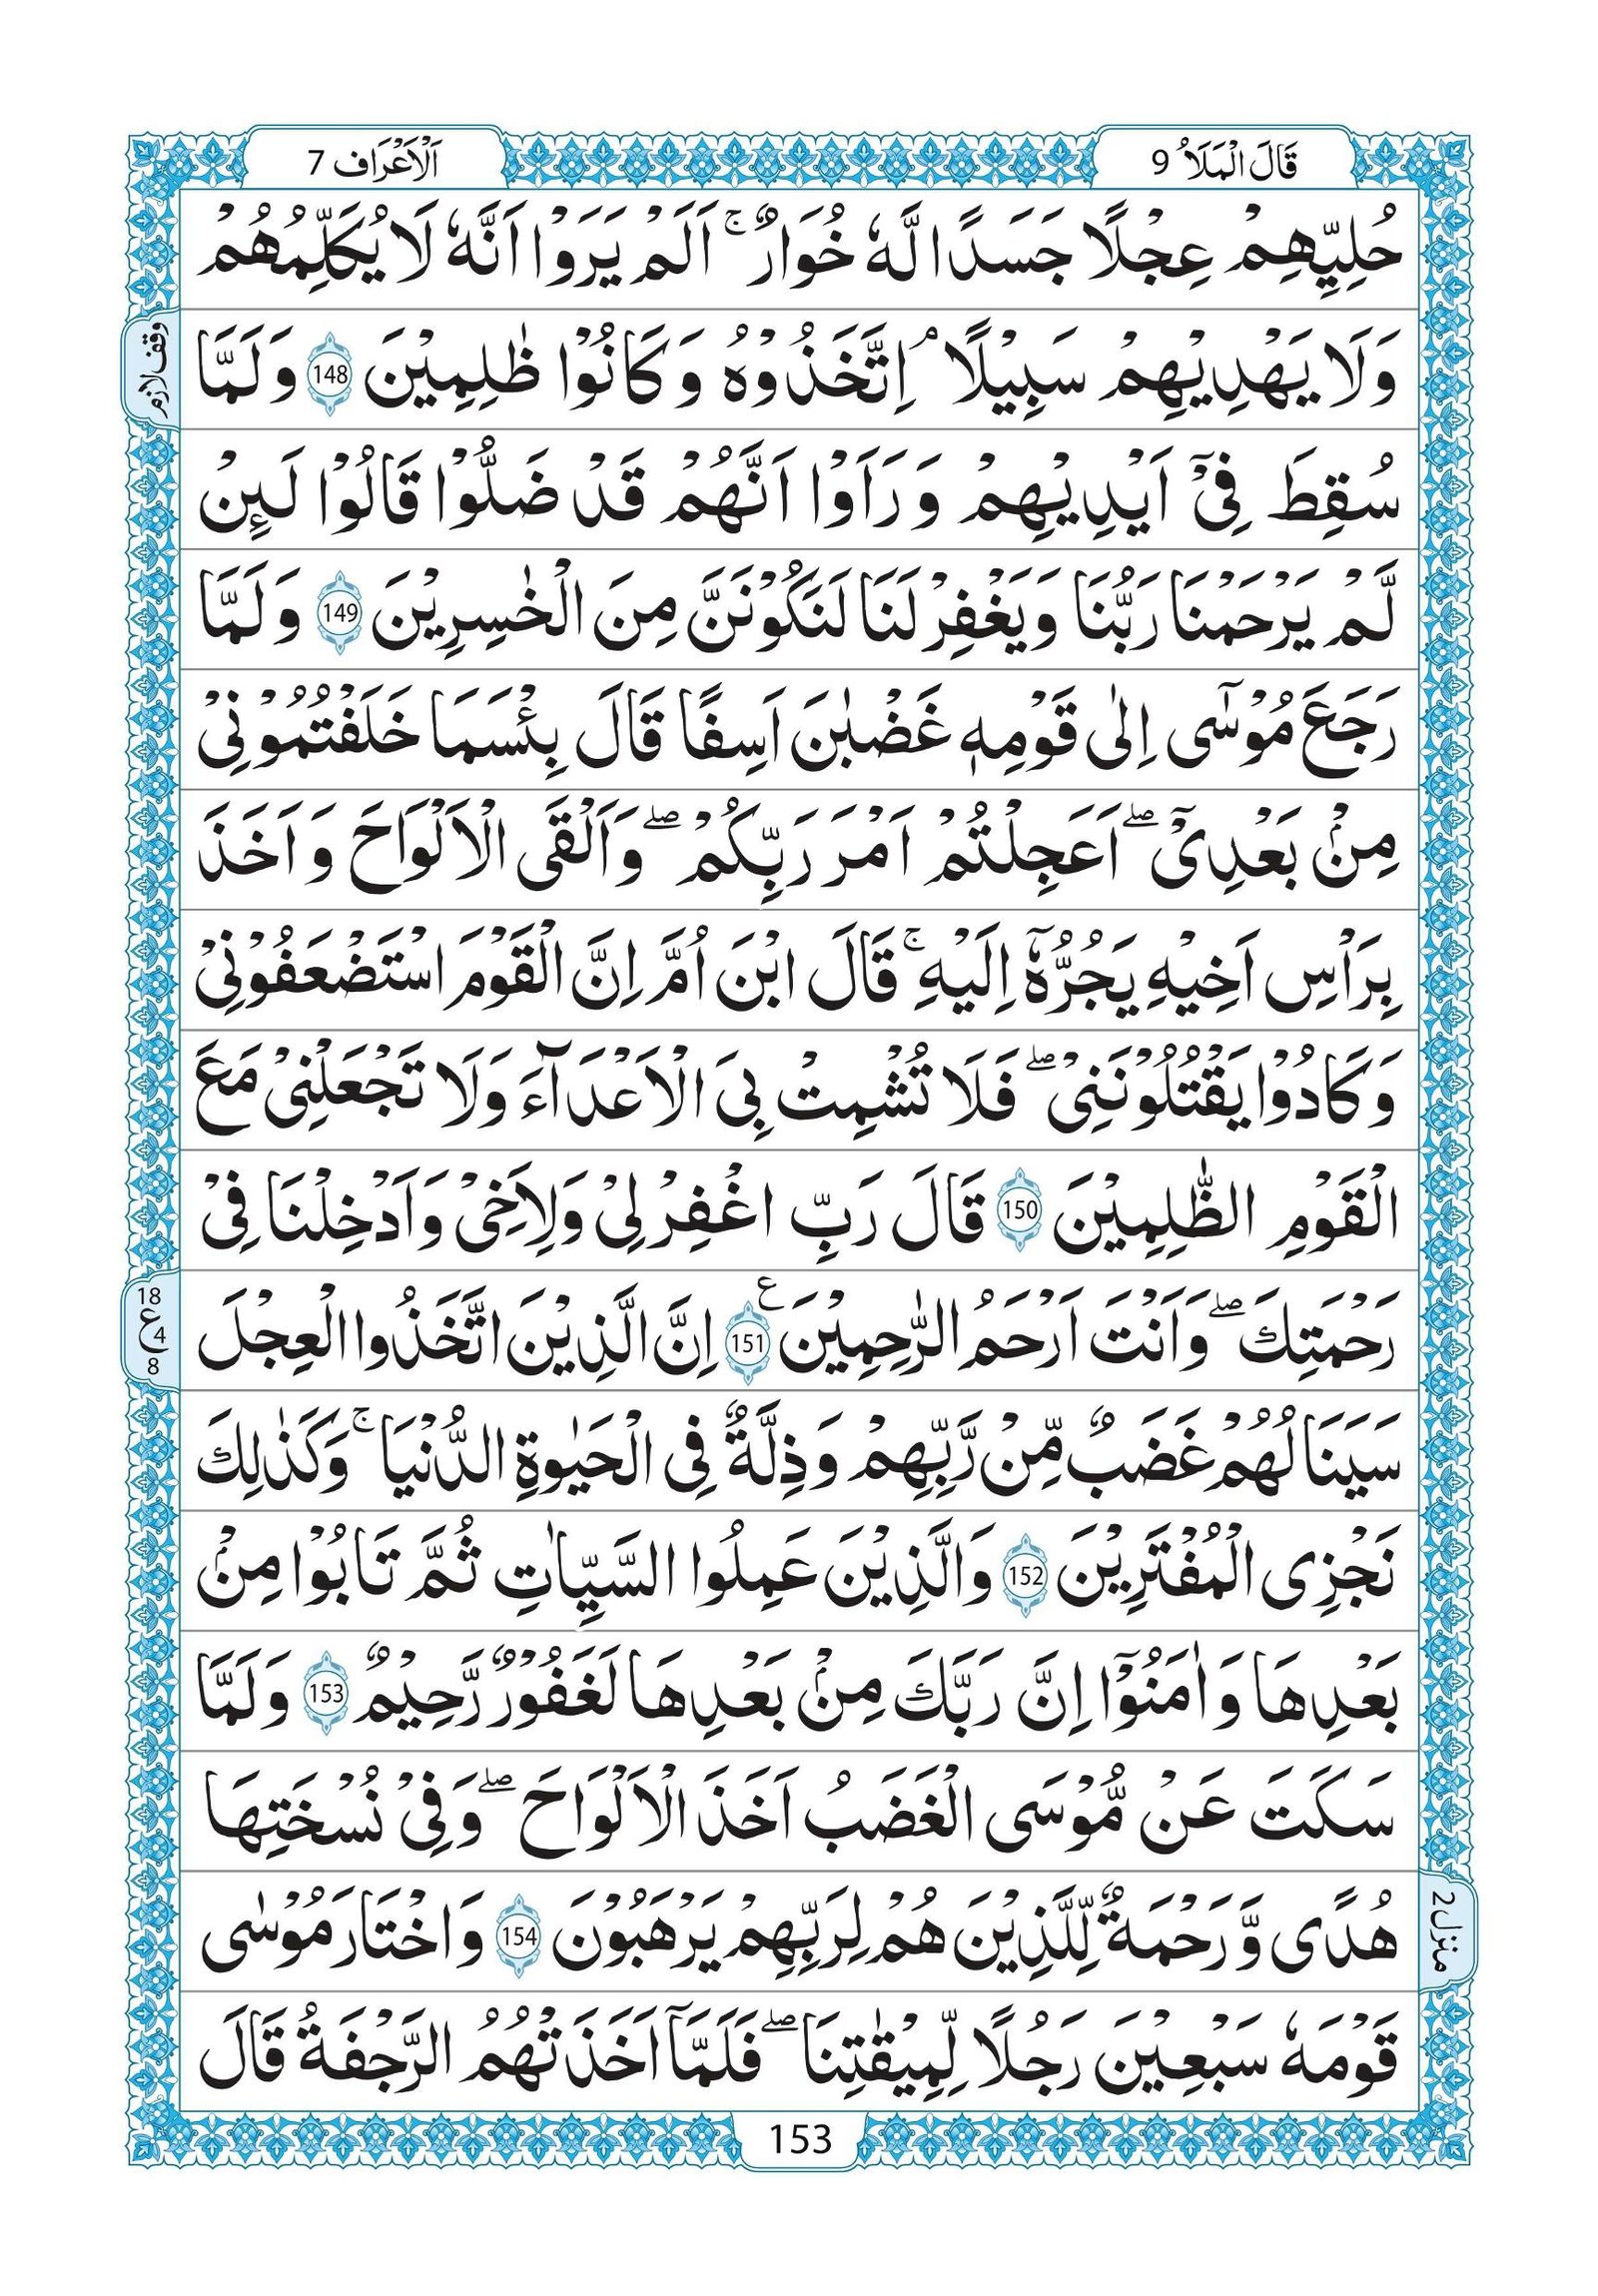 قَالَ الْمَلَاُ 9
اَلْاَعْرَاف 7
حُلِيِّهِمْ عِجْلًا جَسَدًا لَّهٗ خُوَارٌ ؕۚ اَلَمْ يَرَوْا اَنَّهٗ لَا يُكَلِّمُهُمْ
وَلَا يَهْدِيْهِمْ سَبِيْلًا ۘ اِتَّخَذُوْهُ وَكَانُوْا ظٰلِمِيْنَ 148 وَلَمَّا
وقف لازم
سُقِطَ فِيْۤ اَيْدِيْهِمْ وَرَاَوْا اَنَّهُمْ قَدْ ضَلُّوْا قَالُوْا لَىِٕنْ
لَّمْ يَرْحَمْنَا رَبُّنَا وَيَغْفِرْ لَنَا لَنَكُوْنَنَّ مِنَ الْخٰسِرِيْنَ 149 وَلَمَّا
رَجَعَ مُوْسٰۤى اِلٰى قَوْمِهٖ غَضْبٰنَ اَسِفًا قَالَ بِئْسَمَا خَلَفْتُمُوْنِيْ
مِنْۢ بَعْدِيْۤ ۖ اَعَجِلْتُمْ اَمْرَ رَبِّكُمْ ۖ وَاَلْقَى الْاَلْوَاحَ وَاَخَذَ
بِرَاْسِ اَخِيْهِ يَجُرُّهٗۤ اِلَيْهِ ۚ قَالَ ابْنَ اُمَّ اِنَّ الْقَوْمَ اسْتَضْعَفُوْنِيْ
وَكَادُوْا يَقْتُلُوْنَنِيْ ۖ فَلَا تُشْمِتْ بِيَ الْاَعْدَآءَ وَلَا تَجْعَلْنِيْ مَعَ
الْقَوْمِ الظّٰلِمِيْنَ 150 قَالَ رَبِّ اغْفِرْ لِيْ وَلِاَخِيْ وَاَدْخِلْنَا فِيْ
رَحْمَتِكَ ۖ وَاَنْتَ اَرْحَمُ الرّٰحِمِيْنَ 151 ع اِنَّ الَّذِيْنَ اتَّخَذُوا الْعِجْلَ
18 ع 4 8
سَيَنَالُهُمْ غَضَبٌ مِّنْ رَّبِّهِمْ وَذِلَّةٌ فِي الْحَيٰوةِ الدُّنْيَا ۚ وَكَذٰلِكَ
نَجْزِي الْمُفْتَرِيْنَ 152 وَالَّذِيْنَ عَمِلُوا السَّيِّاٰتِ ثُمَّ تَابُوْا مِنْۢ
بَعْدِهَا وَاٰمَنُوْۤا اِنَّ رَبَّكَ مِنْۢ بَعْدِهَا لَغَفُوْرٌ رَّحِيْمٌ 153 وَلَمَّا
سَكَتَ عَنْ مُّوْسَى الْغَضَبُ اَخَذَ الْاَلْوَاحَ ۖ وَفِيْ نُسْخَتِهَا
هُدًى وَّرَحْمَةٌ لِّلَّذِيْنَ هُمْ لِرَبِّهِمْ يَرْهَبُوْنَ 154 وَاخْتَارَ مُوْسٰى
منزل 2
قَوْمَهٗ سَبْعِيْنَ رَجُلًا لِّمِيْقٰتِنَا ۖ فَلَمَّاۤ اَخَذَتْهُمُ الرَّجْفَةُ قَالَ
153